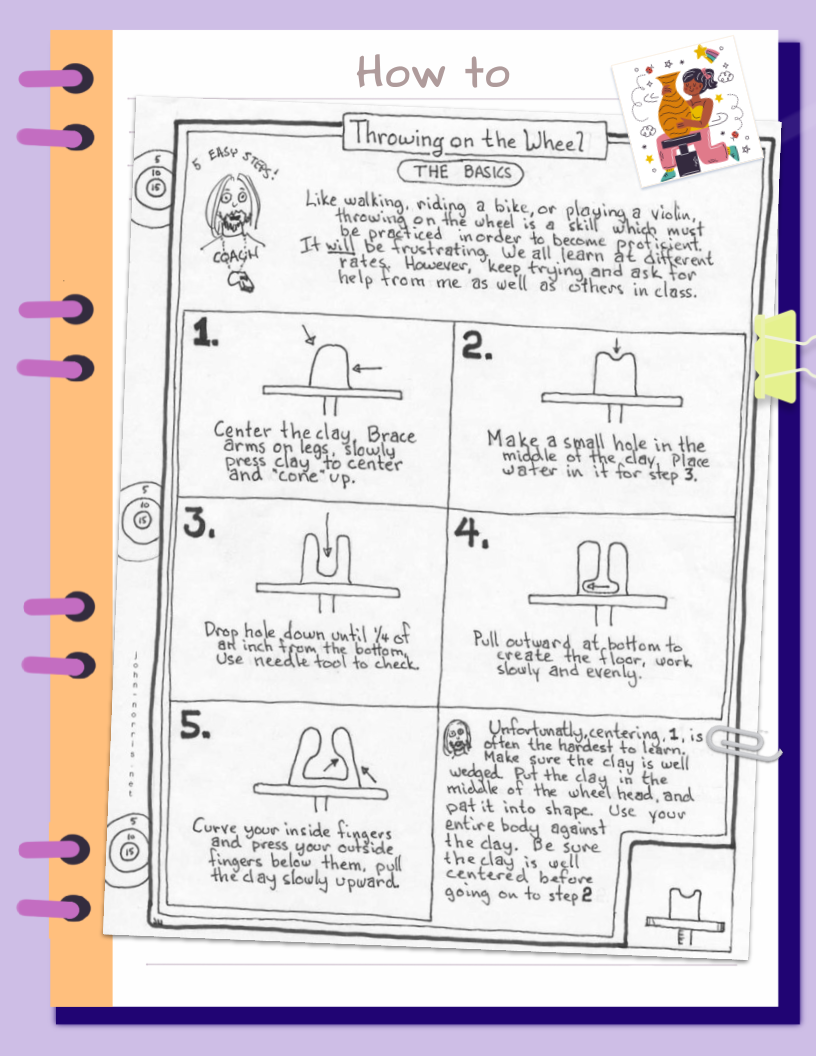 How to
Throwing on the Wheel
THE BASICS
5 EASY STEPS!
COACH
Like walking, riding a bike, or playing a violin,
throwing on the wheel is a skill which must
be practiced inorder to become proficient.
It will be frustrating. We all learn at different
rates. However, keep trying and ask for
help from me as well as others in class.
1.
Center the clay, Brace
arms on legs, slowly
press clay to center
and "cone" up.
2.
Make a small hole in the
middle of the clay, Place
water in it for step 3.
3.
Drop hole down until 1/4 of
an inch from the bottom,
Use needle tool to check.
4.
Pull outward at bottom to
create the floor, work
slowly and evenly.
5.
Curve your inside fingers
and press your outside
fingers below them, pull
the clay slowly upward.
Unfortunatly, centering, 1, is
often the hardest to learn.
Make sure the clay is well
wedged. Put the clay in the
middle of the wheel head, and
pat it into shape. Use your
entire body against
the clay. Be sure
the clay is well
centered before
going on to step 2
5
10
15
5
10
15
john-norris.net
5
10
15